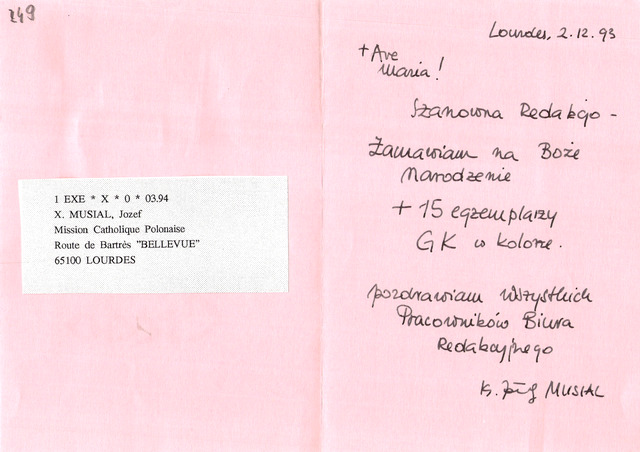 249
1 EXE * X * 0 * 03.94
X. MUSIAL, Jozef
Mission Catholique Polonaise
Route de Bartrès "BELLEVUE"
65100 LOURDES
Lourdes, 2.12.93
+ Ave
Maria!
Szanowna Redakcjo -
Zamawiam na Boże
Narodzenie
+ 15 egzemplarzy
GK w kolorze.
pozdrawiam wszystkich
Pracowników Biura
Redakcyjnego
Ks. Józef MUSIAL